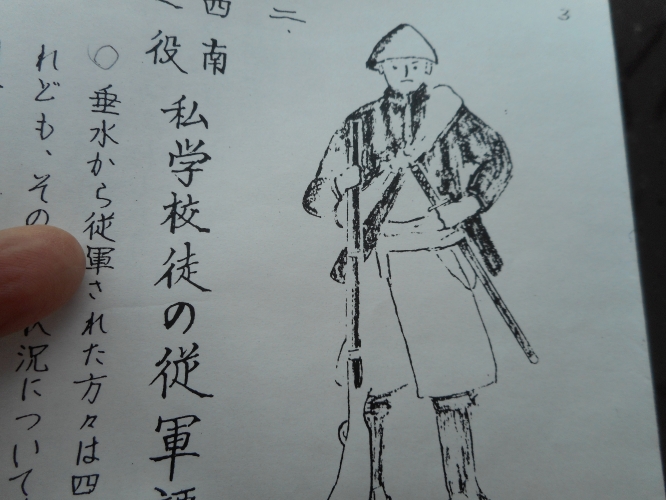 3
二、
西南
役
私学校徒の従軍
○ 垂水から従軍された方々は四
れども、その 況について